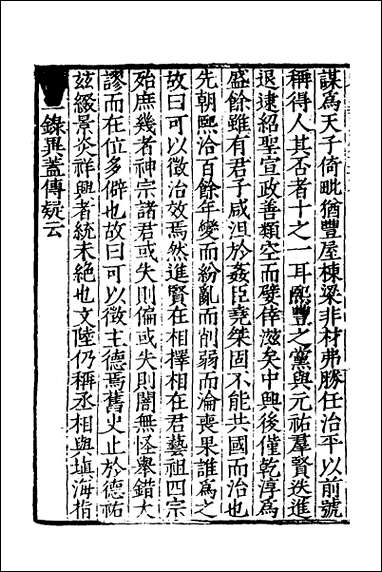 謀爲天子倚毗猶豐屋棟梁非材弗勝任治平以前號
稱得人其否者十之一耳熙豐之黨與元祐羣賢迭進
退逮紹聖宣政善類空而嬖倖滋矣中興後僅乾淳爲
盛餘雖有君子咸沮於姦臣堯桀固不能共國而治也
先朝熙洽百餘年變而紛亂而削弱而淪喪果誰爲之
故曰可以徵治效焉然進賢在相擇相在君藝祖四宗
始庶幾者神宗諸君或失則偏或失則闇無怪舉錯大
謬而在位多僻也故曰可以徵主德焉舊史止於德祐
玆綴景炎祥興者統未絕也文陸仍稱丞相與塡海指
錄異蓋傳疑云